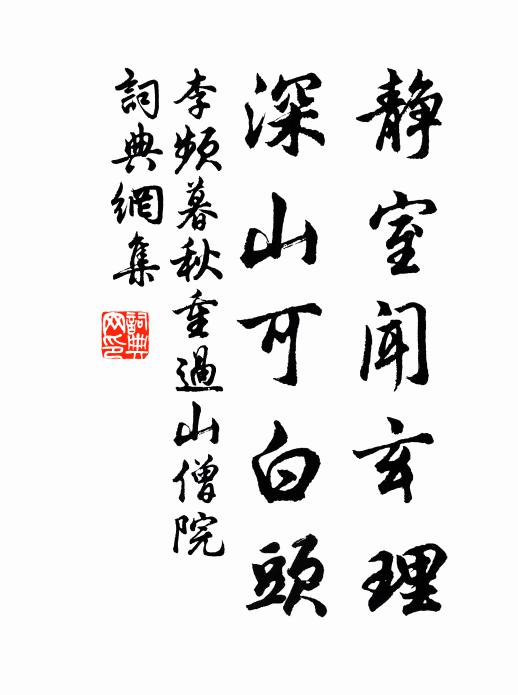 静室闻玄理
深山可白頭
李频暮秋重過山僧院
詞典網集
詞典
网印